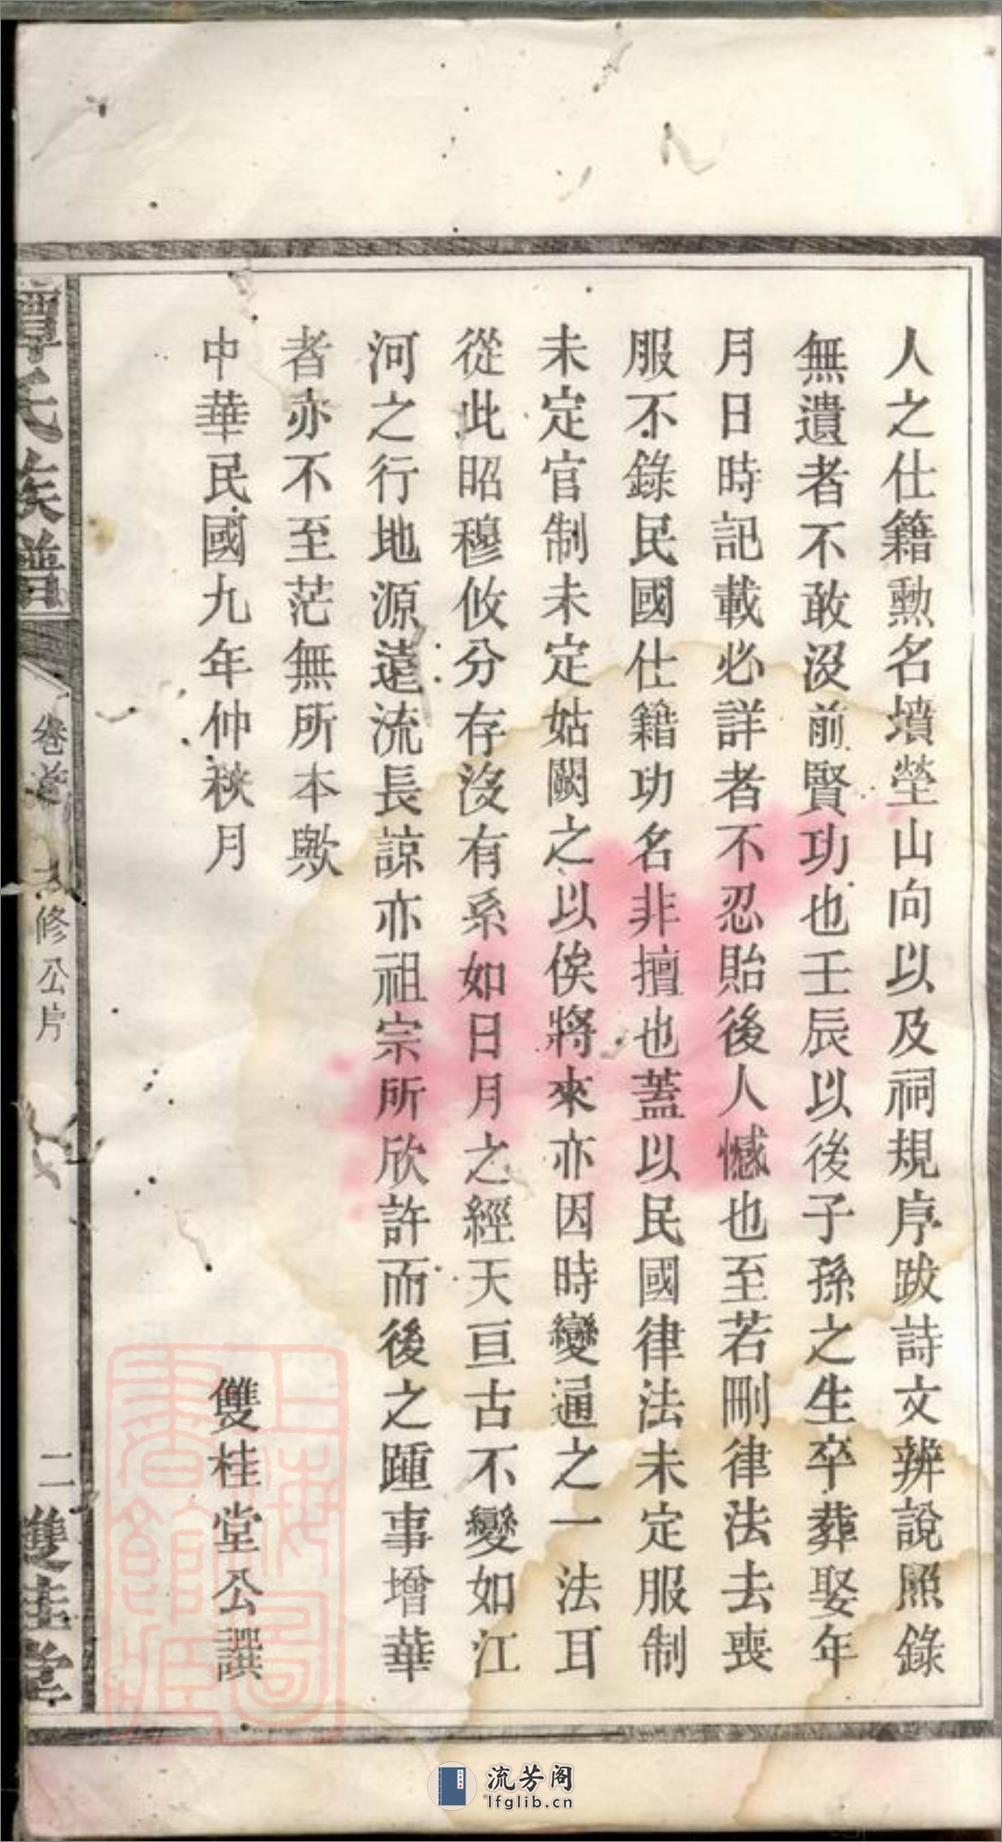 人之仕籍勳名墳塋山向以及祠規序跋詩文辨說照錄
無遺者不敢沒前賢功也壬辰以後子孫之生卒葬娶年
月日時記載必詳者不忍貽後人憾也至若刪律法去喪
服不錄民國仕籍功名非擅也蓋以民國律法未定服制
未定官制未定姑闕之以俟將來亦因時變通之一法耳
從此昭穆攸分存沒有系如日月之經天亘古不變如江
河之行地源遠流長諒亦祖宗所欣許而後之踵事增華
者亦不至茫無所本歟
中華民國九年仲秋月
雙桂堂公譔
譚氏族譜
卷首
修公片
二
雙桂堂
上海圖書館藏
流芳阁
lfglib.cn